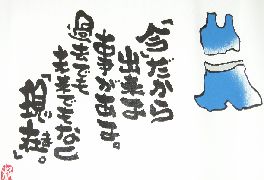 「今」だから
出来る
事がある。
過去でも
未来でもなく
「現在」。